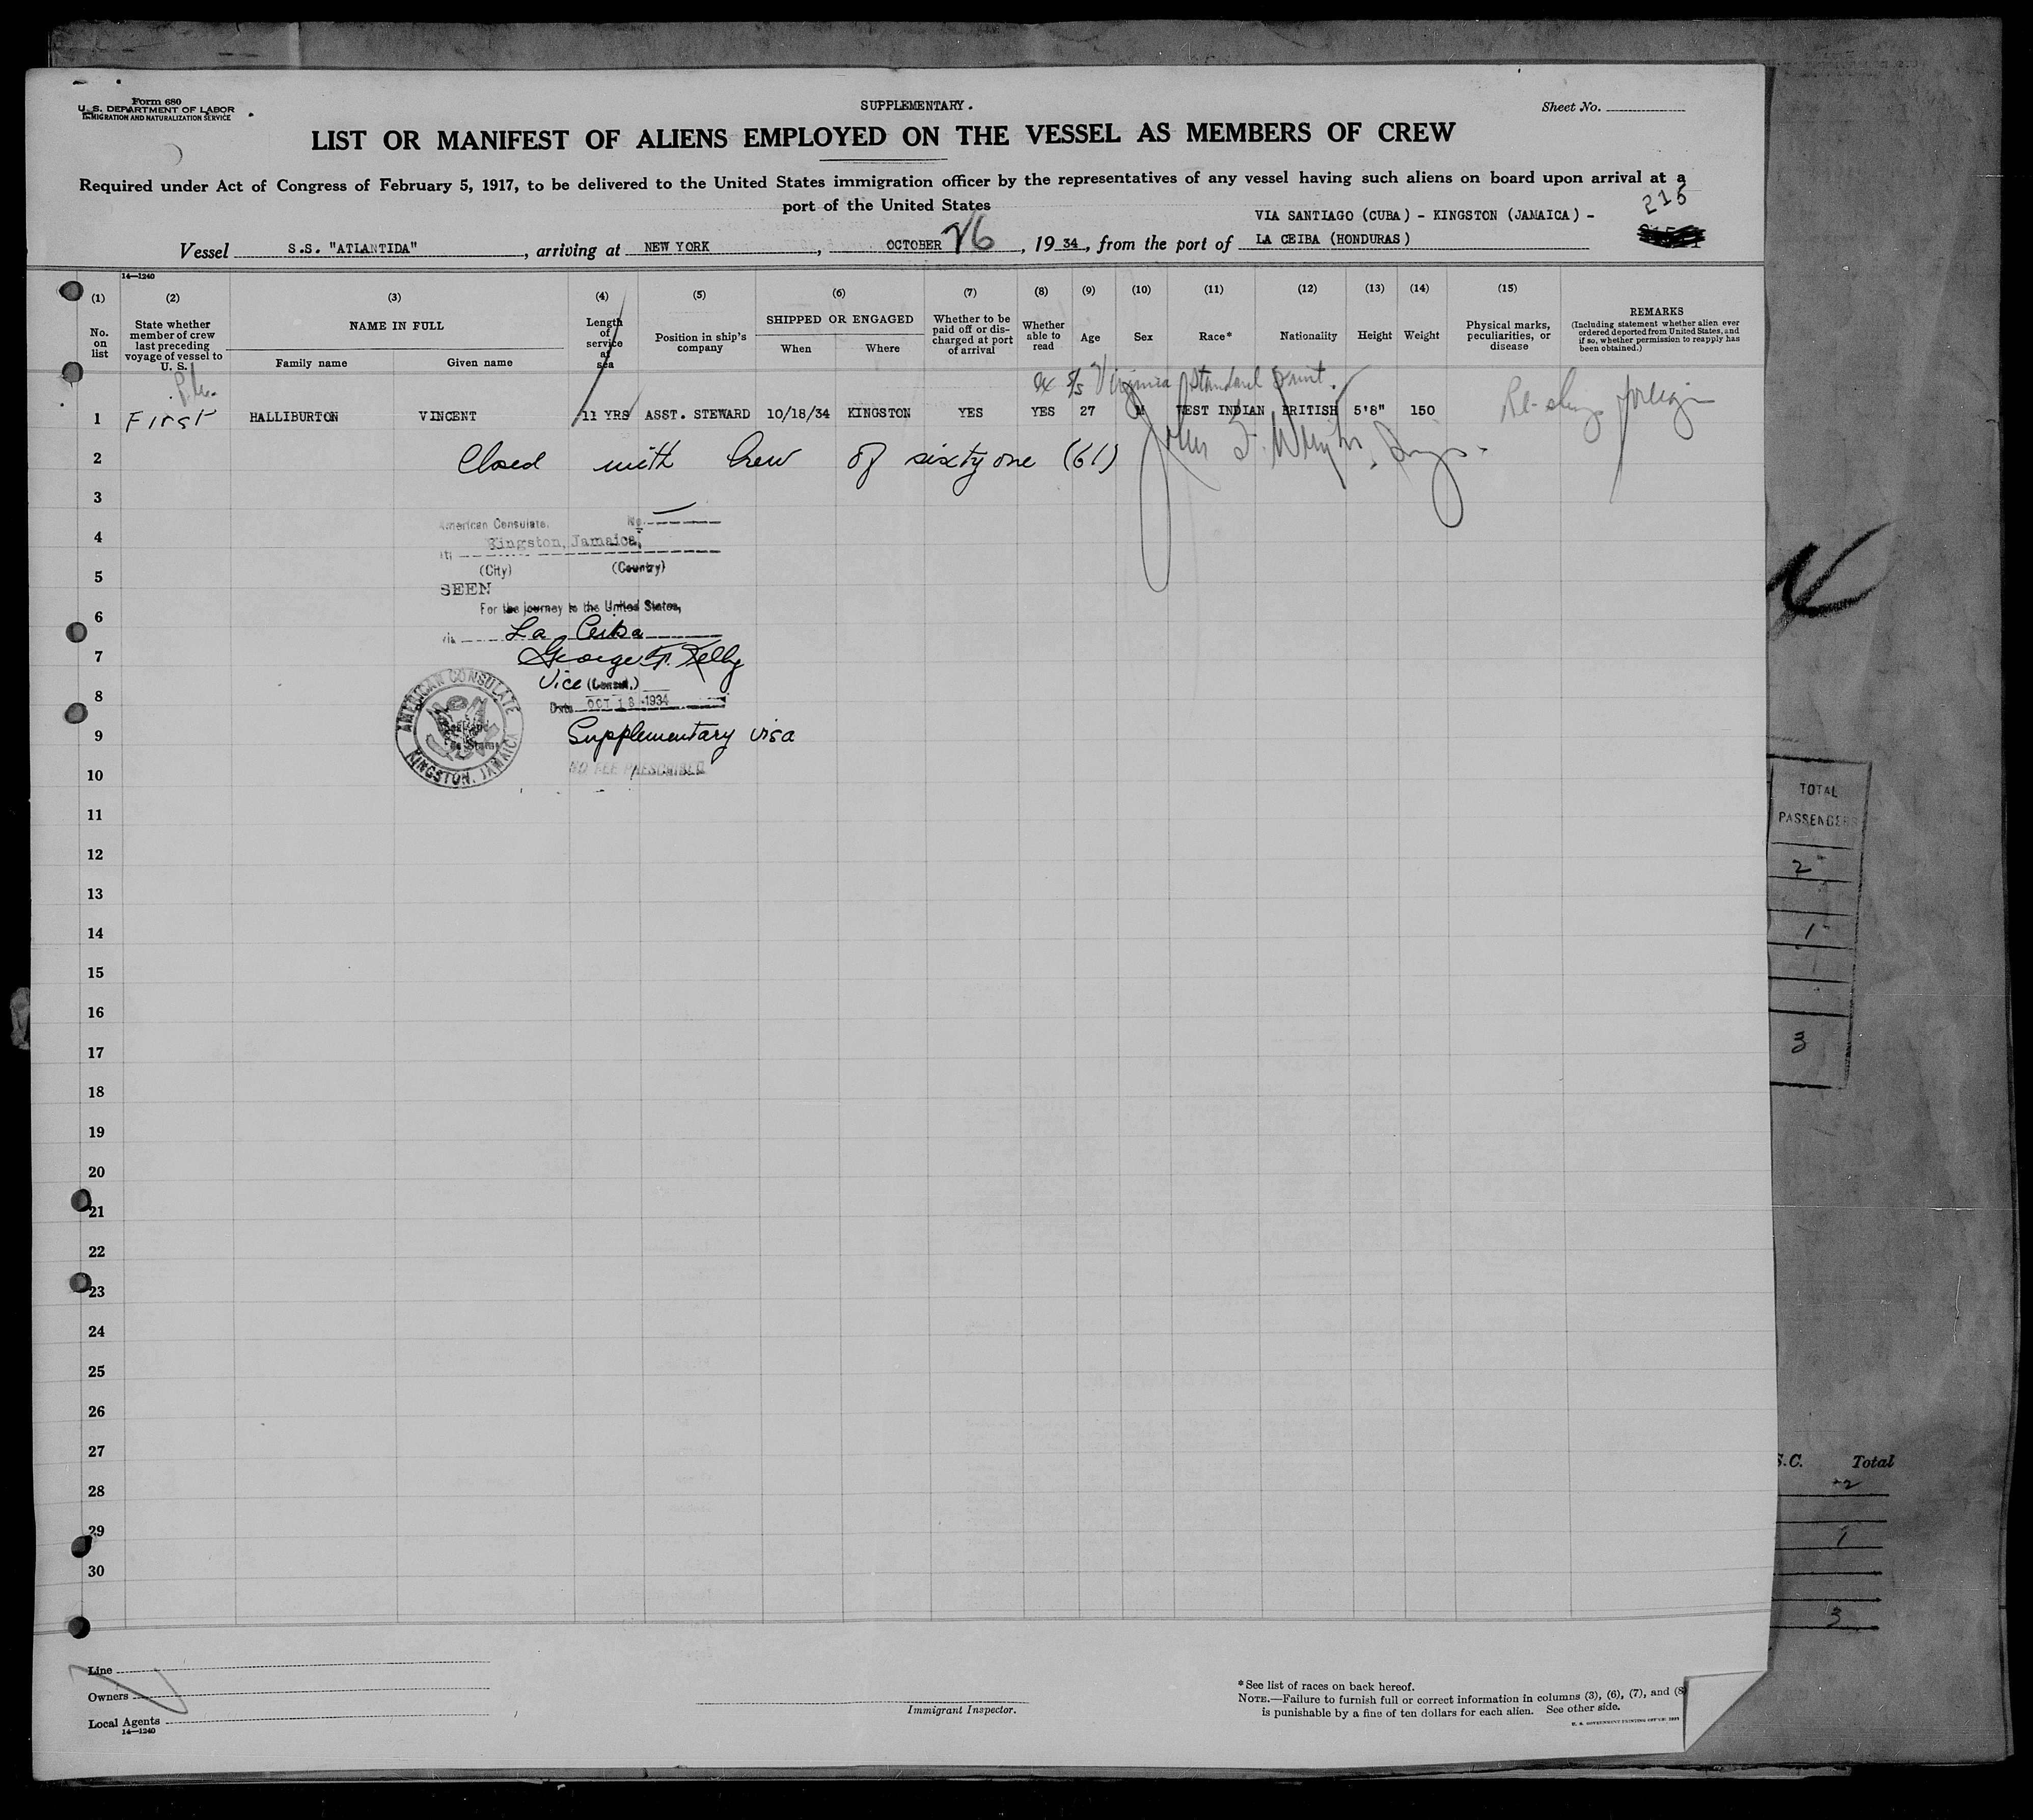 Form 680
U. S. DEPARTMENT OF LABOR
IMMIGRATION AND NATURALIZATION SERVICE
SUPPLEMENTARY.
Sheet No.
LIST OR MANIFEST OF ALIENS EMPLOYED ON THE VESSEL AS MEMBERS OF CREW
Required under Act of Congress of February 5, 1917, to be delivered to the United States immigration officer by the representatives of any vessel having such aliens on board upon arrival at a
port of the United States
216
VIA SANTIAGO (CUBA) - KINGSTON (JAMAICA) -
Vessel S.S. "ATLANTIDA", arriving at NEW YORK, OCTOBER 26, 1934, from the port of LA CEIBA (HONDURAS)
14—1240
(1) (2) (3) (4) (5) (6) (7) (8) (9) (10) (11) (12) (13) (14) (15)
No. on list
State whether member of crew last preceding voyage of vessel to U. S.
NAME IN FULL
Family name
Given name
Length of service at sea
Position in ship's company
SHIPPED OR ENGAGED
When
Where
Whether to be paid off or discharged at port of arrival
Whether able to read
Age
Sex
Race*
Nationality
Height
Weight
Physical marks, peculiarities, or disease
REMARKS
(Including statement whether alien ever ordered deported from United States, and if so, whether permission to reapply has been obtained.)
ex S/s Virginia Standard
1 First HALLIBURTON VINCENT 11 YRS ASST. STEWARD 10/18/34 KINGSTON YES YES 27 M WEST INDIAN BRITISH 5'8" 150 foreign
2 Closed with Crew of sixty one (61)
3
4
5
6
7
8
9
10
11
12
13
14
15
16
17
18
19
20
21
22
23
24
25
26
27
28
29
30
American Consulate, No.
Kingston, Jamaica,
(City) (Country)
SEEN
For the journey to the United States,
via La Ceiba
George F. Kelly
Vice (Consul.)
Date OCT 18 1934
Supplementary visa
NO FEE PRESCRIBED
AMERICAN CONSULATE
KINGSTON, JAMAICA
TOTAL
PASSENGERS
2
1
3
S.C. Total
2
1
3
Line
Owners
Local Agents
14—1240
Immigrant Inspector.
*See list of races on back hereof.
NOTE.—Failure to furnish full or correct information in columns (3), (6), (7), and (8)
is punishable by a fine of ten dollars for each alien. See other side.
U. S. GOVERNMENT PRINTING OFFICE: